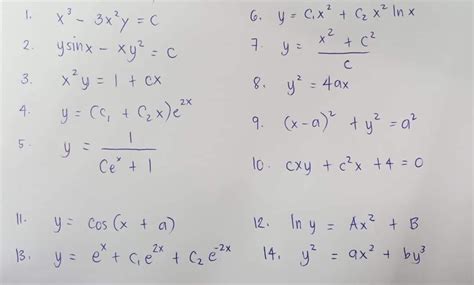 1. x³ - 3x²y = C
2. ysinx - xy² = c
3. x²y = 1 + cx
4. y = (c₁ + c₂x)e²ˣ
5. y = 1 / (Ceˣ + 1)
6. y = C₁x² + C₂x² ln x
7. y = (x² + c²) / c
8. y² = 4ax
9. (x-a)² + y² = a²
10. cxy + c²x + 4 = 0
11. y = cos(x + a)
12. ln y = Ax² + B
13. y = eˣ + c₁e²ˣ + c₂e⁻²ˣ
14. y² = ax² + by³